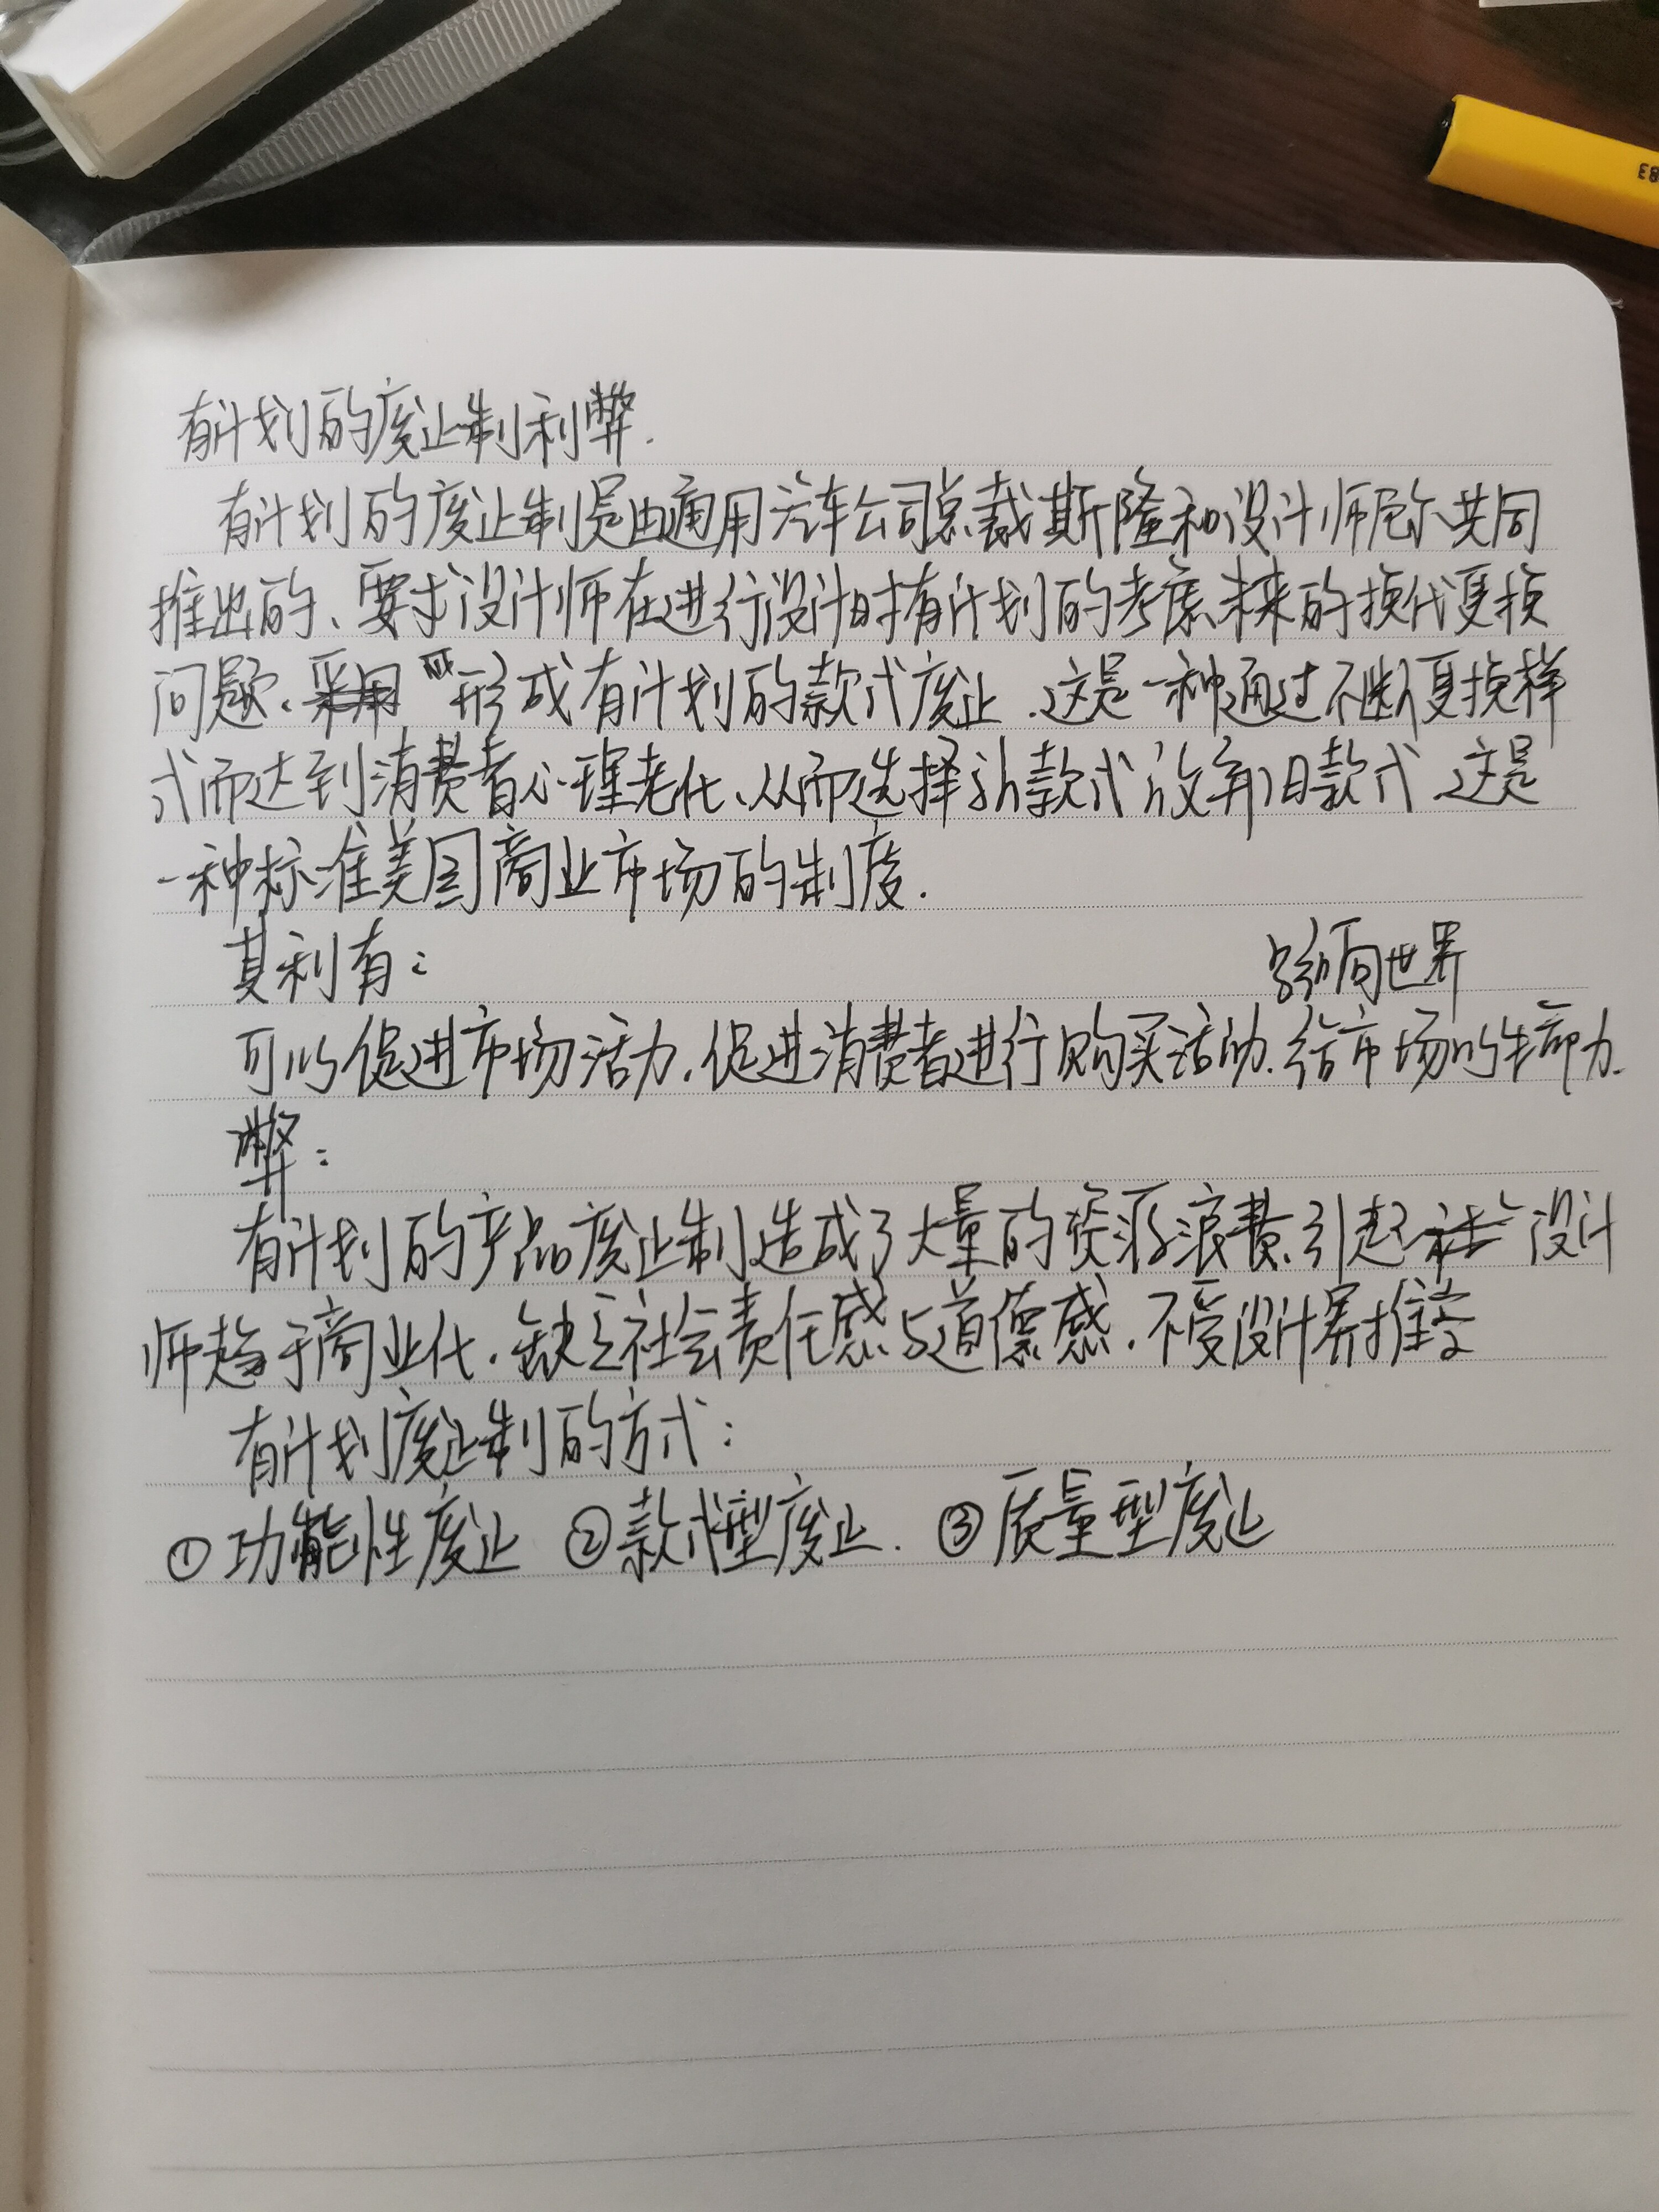 有计划的废止制利弊.
有计划的废止制是由通用汽车公司总裁斯隆和设计师厄尔共同
推出的、要求设计师在进行设计时有计划的考虑未来的换代更换
问题、形成有计划的款式废止.这是一种通过不断更换样
式而达到消费者心理老化、从而选择新款式放弃旧款式.这是
一种标准美国商业市场的制度.
其利有:
影响世界
可以促进市场活力.促进消费者进行购买活动.给市场以生命力.
弊:
有计划的产品废止制造成了大量的资源浪费.引起设计
师趋于商业化.缺乏社会责任感与道德感.不受设计界推崇
有计划废止制的方式:
①功能性废止 ②款式型废止. ③质量型废止
E83